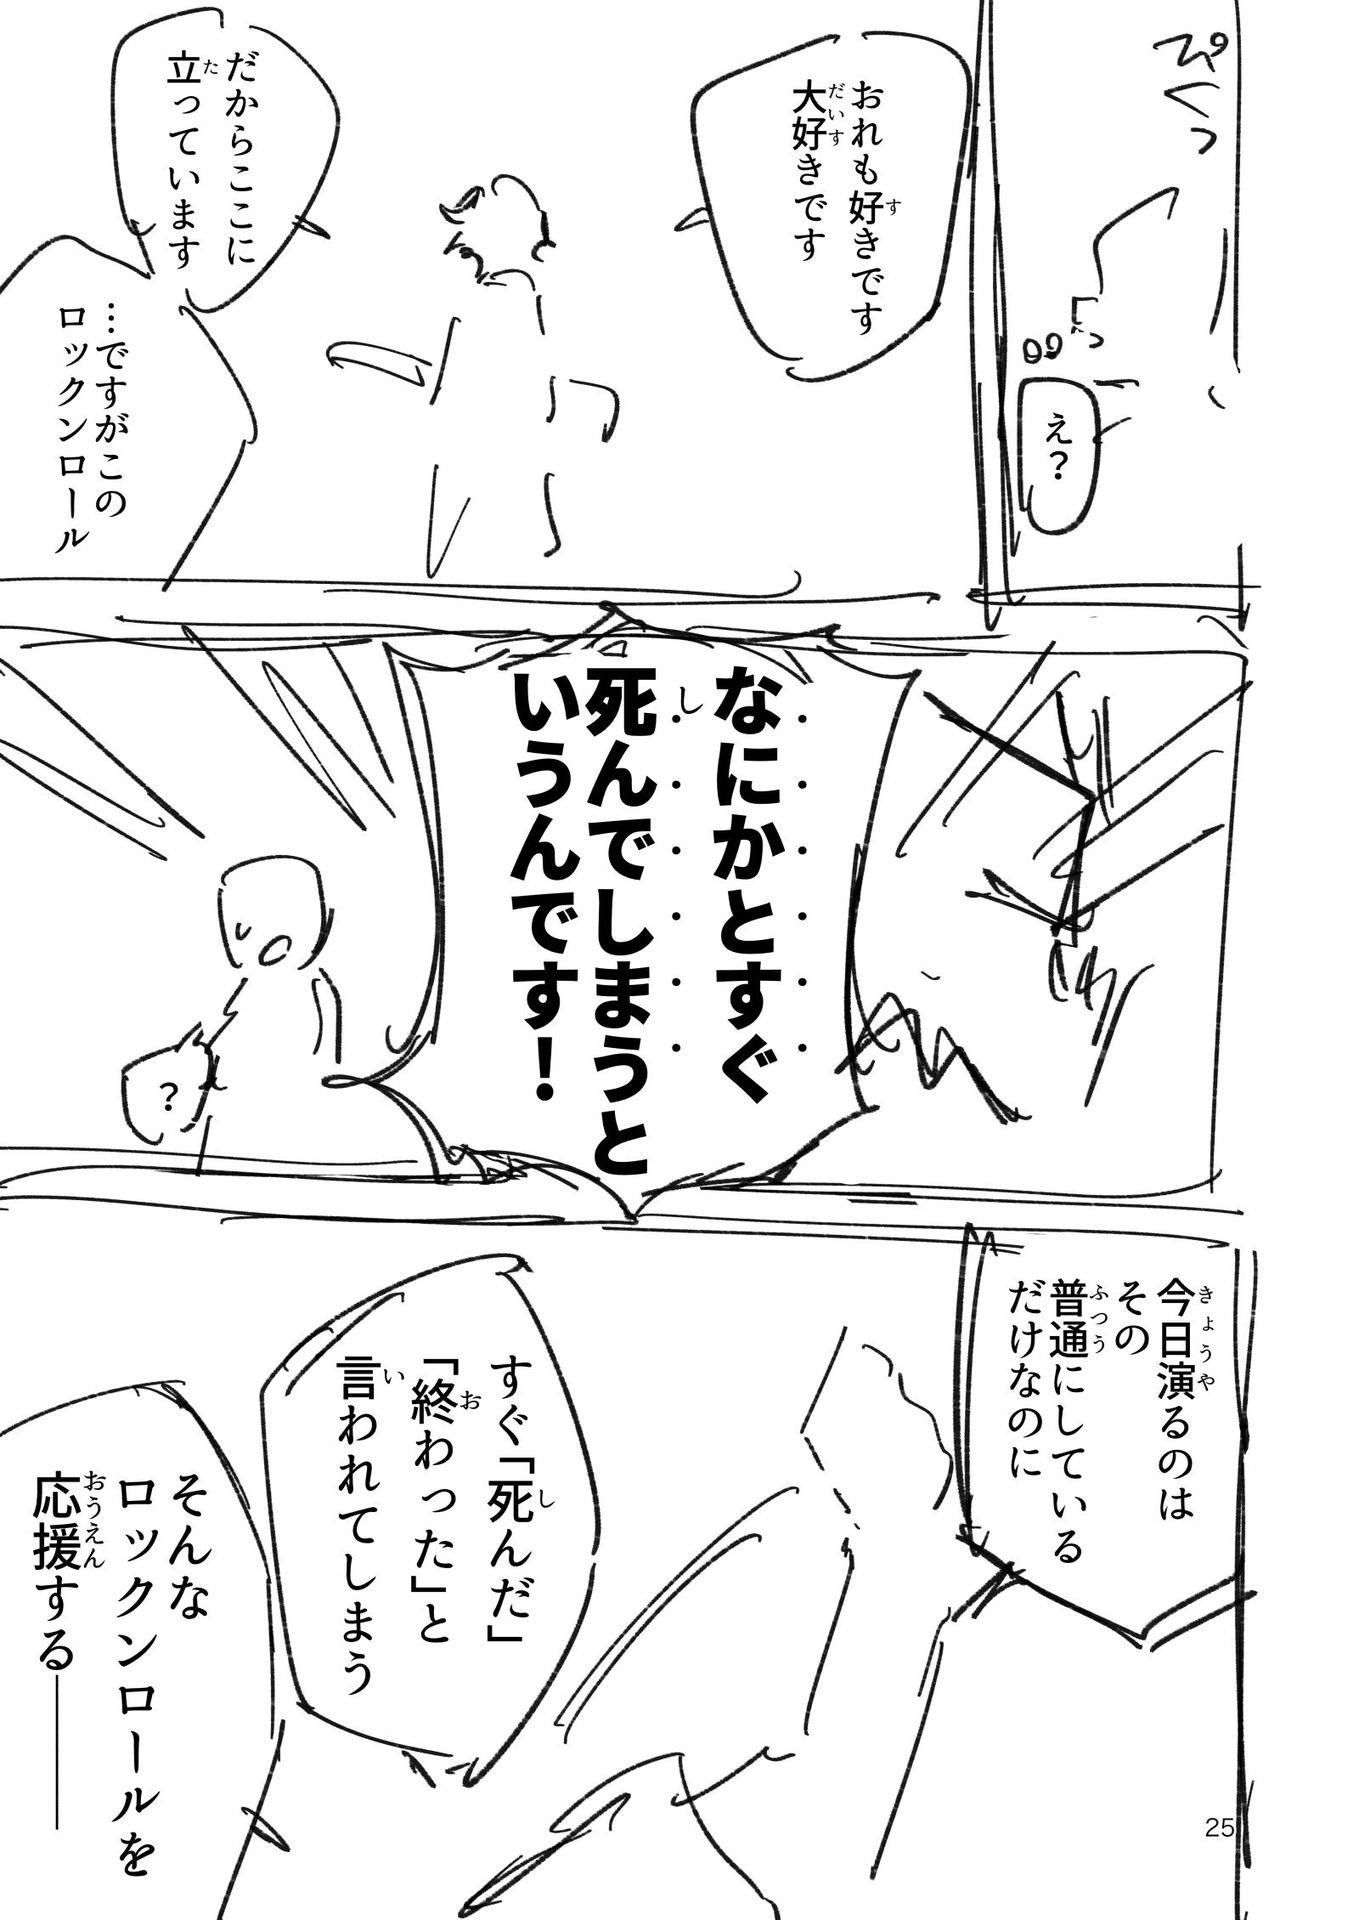 ぴくっ
え？
おれも好きです
大好きです
だからここに
立っています
…ですがこの
ロックンロール
なにかとすぐ
死んでしまうと
いうんです！
？
今日演るのは
その
普通にしている
だけなのに
すぐ「死んだ」
「終わった」と
言われてしまう
そんな
ロックンロールを
応援する――
25